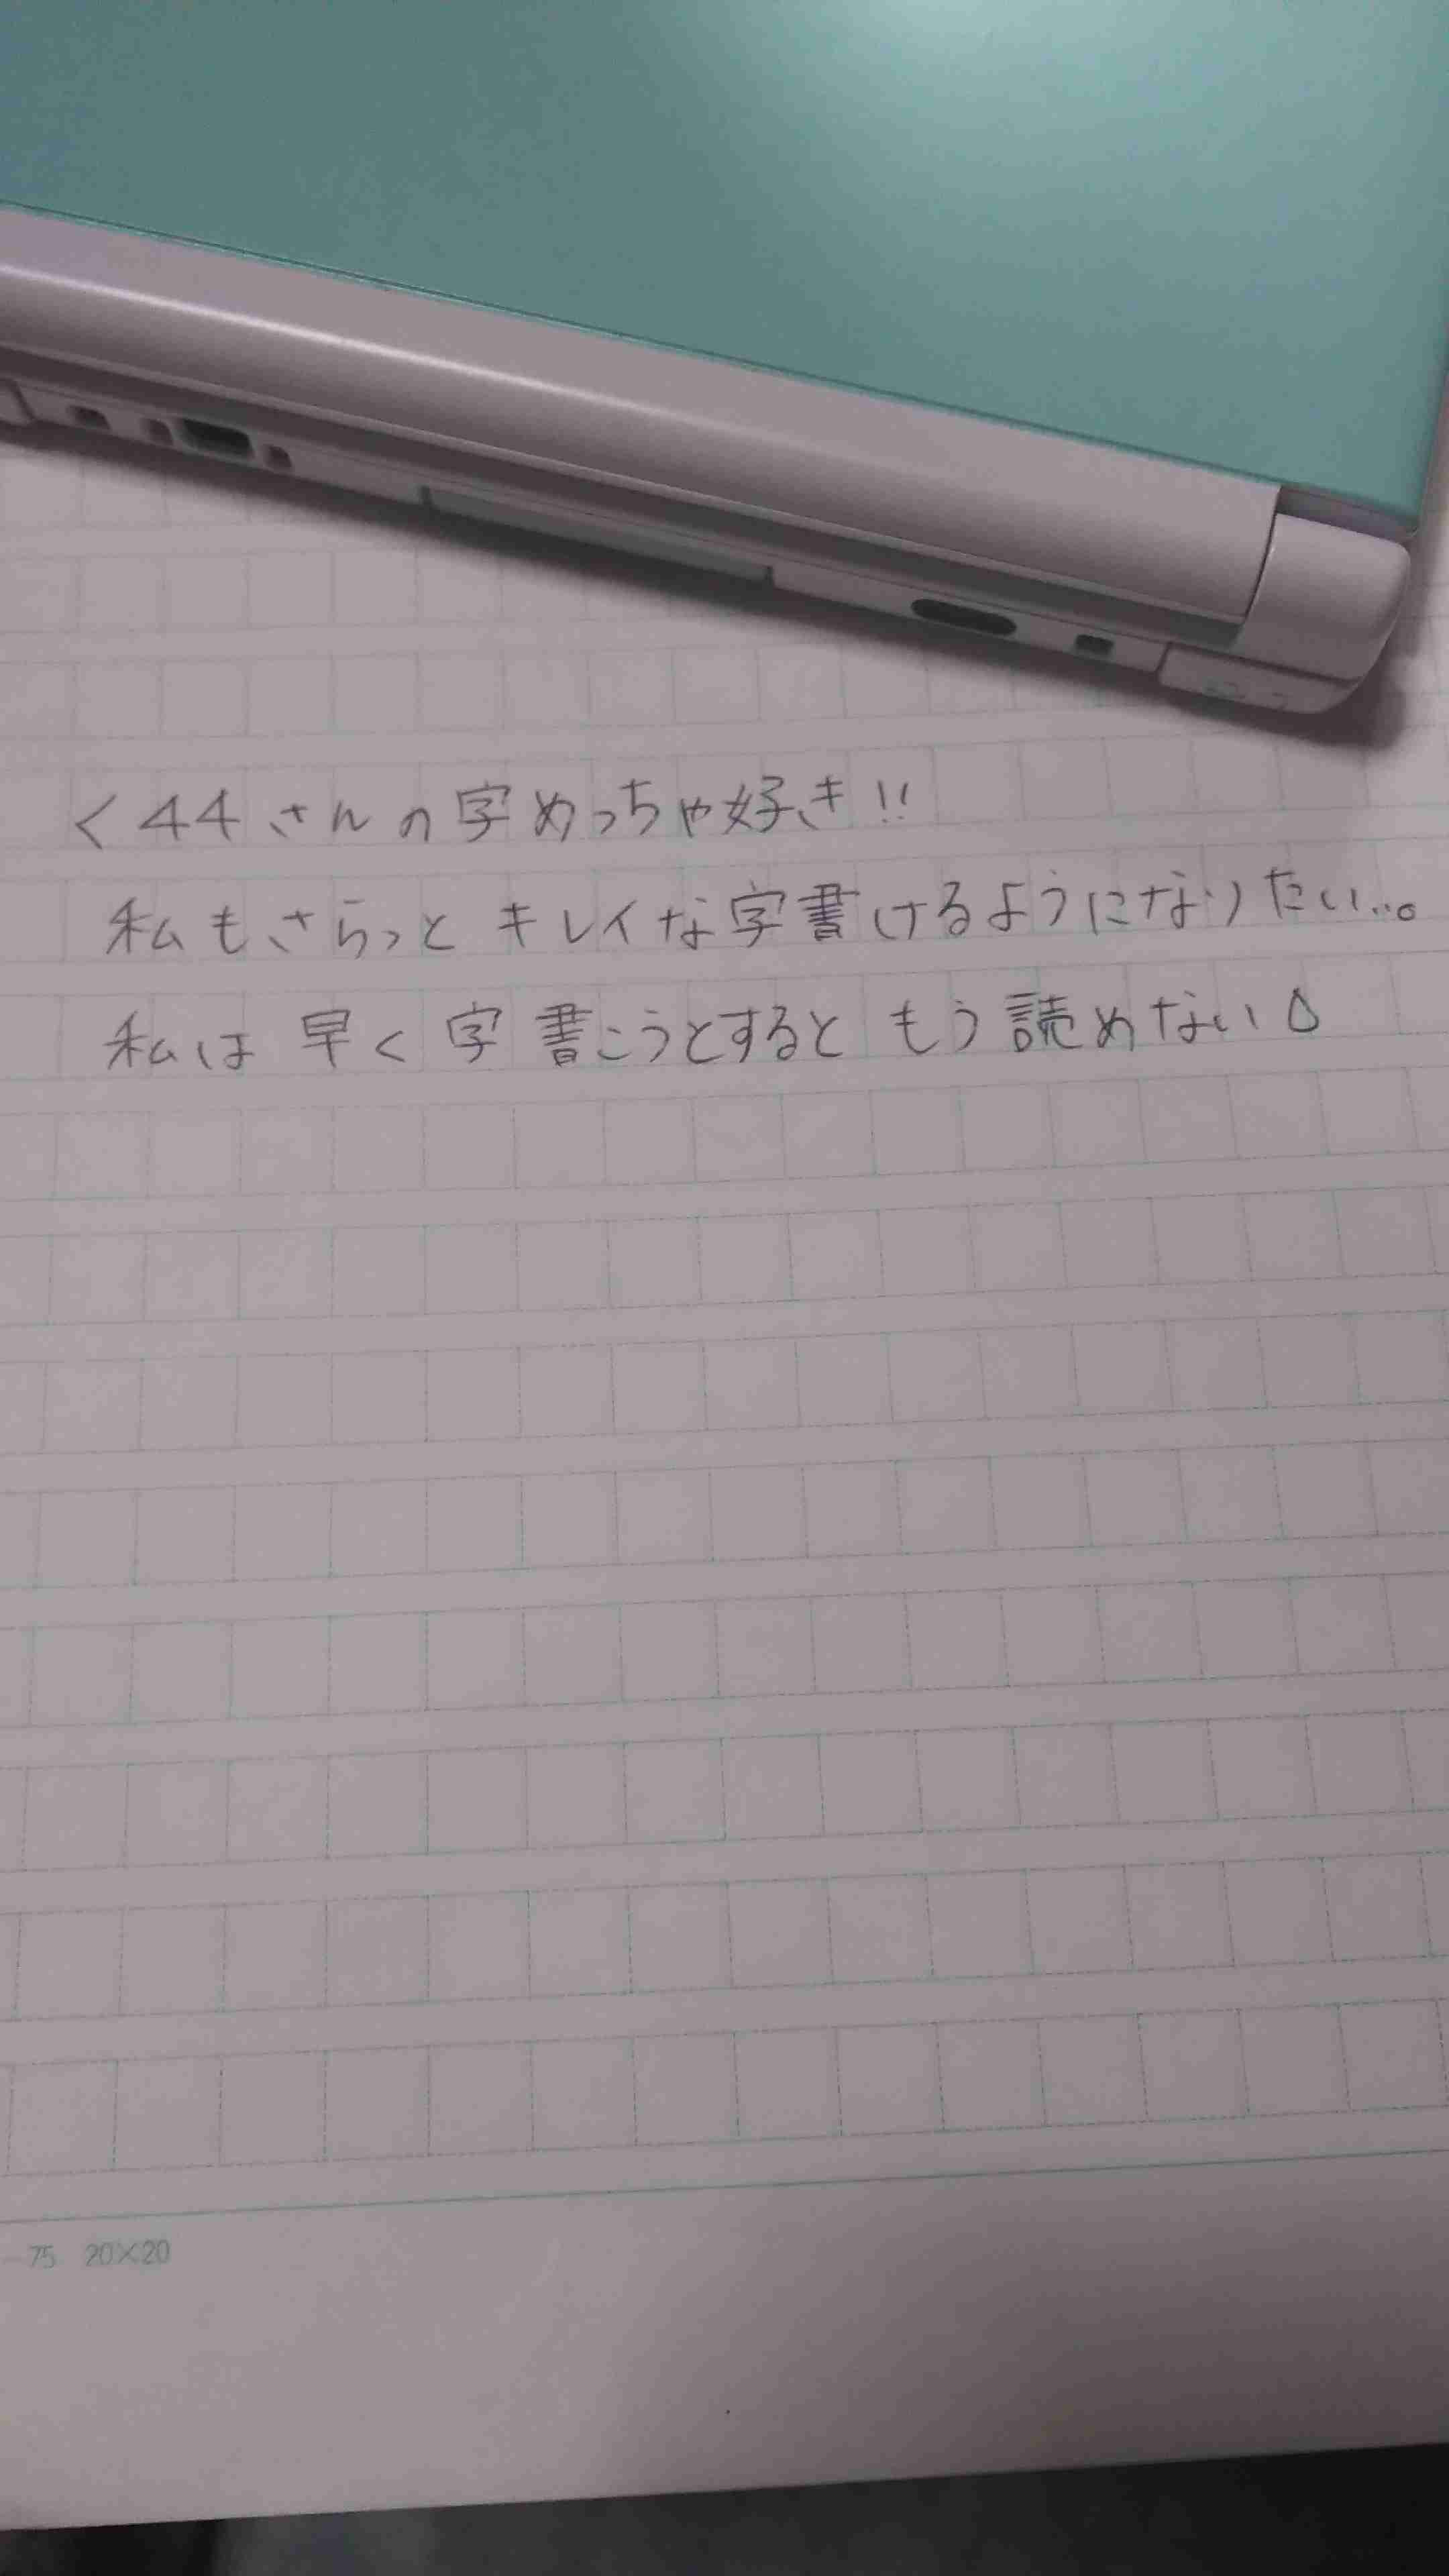 く44さんの字めっちゃ好き!!
私もさらっとキレイな字書けるようになりたい…。
私は早く字書こうとするともう読めない
75 20×20